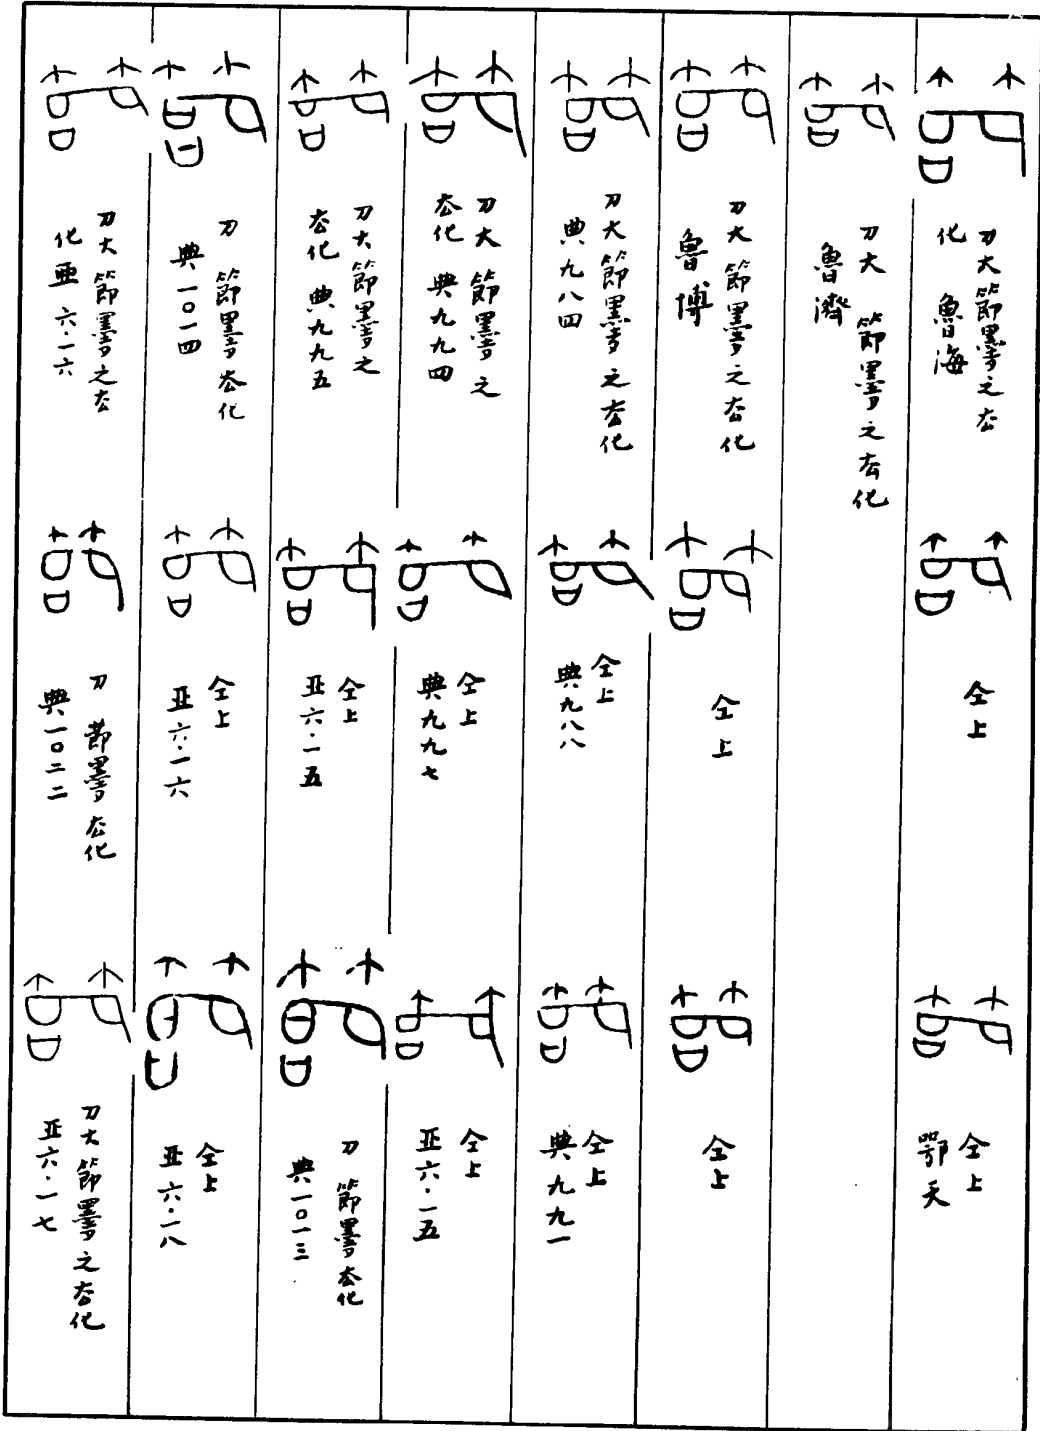 刀大節墨之厺
化 魯海
仝上
仝上
鄂天
刀大 節墨之厺化
魯濟
刀大節墨之厺化
魯博
仝上
仝上
刀大節墨之厺化
典九八四
仝上
典九八八
仝上
典九九一
刀大節墨之
厺化 典九九四
仝上
典九九七
仝上
亚六·一五
刀大節墨之
厺化 典九九五
仝上
亚六·一五
刀 節墨厺化
典一〇一三
刀 節墨厺化
典一〇一四
仝上
亚六·一六
仝上
亚六·一八
刀大節墨之厺
化 亜六·一六
刀 節墨厺化
典一〇二二
刀大節墨之厺化
亚六·一七